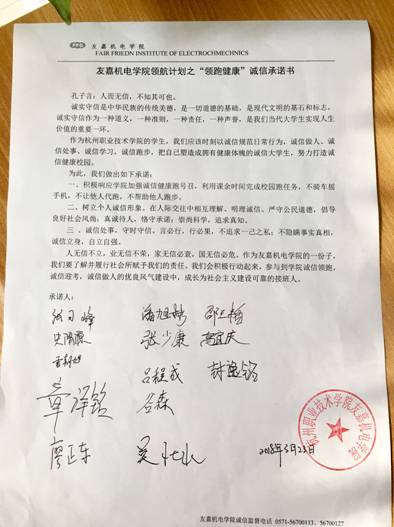 友嘉机电学院
FAIR FRIEDN INSTITUTE OF ELECTROMECHNICS
友嘉机电学院领航计划之“领跑健康”诚信承诺书
孔子言：人而无信，不知其可也。
诚实守信是中华民族的传统美德，是一切道德的基础，是现代文明的基石和标志，
诚实守信作为一种道义，一种准则，一种责任，一种声誉，是我们当代大学生实现人生
价值的重要一环。
作为杭州职业技术学院的学生，我们应该时刻以诚信规范日常行为，诚信做人、诚
信处事、诚信学习，诚信跑步，把自己塑造成拥有健康体魄的诚信大学生，努力打造诚
信健康校园。
为此，我们做出如下承诺：
一、积极响应学院加强诚信健康跑号召，利用课余时间完成校园跑任务，不骑车摇
手机，不让他人代跑，不帮助他人跑步。
二、树立个人诚信形象，在人际交往中相互理解、明理诚信、严守公民道德，倡导
良好社会风尚；真诚待人、恪守承诺；崇尚科学，追求真知。
三、诚信处事，守时守信、言必行，行必果，不追求一己之私；不隐瞒事实真相，
诚信立身，自立自强。
人无信不立，业无信不荣，家无信必衰，国无信必危。作为友嘉机电学院的一份子，
我们要了解并履行社会所赋予我们的责任，我们会积极行动起来，参与到学院诚信领跑，
诚信迎考，诚信做人的优良风气建设中，成长为社会主义建设可靠的接班人。
承诺人：
张少康
吕程成
章泽铭 谷森
廖正东
2018年5月23日
杭州职业技术学院友嘉机电学院
友嘉机电学院诚信监督电话 0571-56700113、56700127